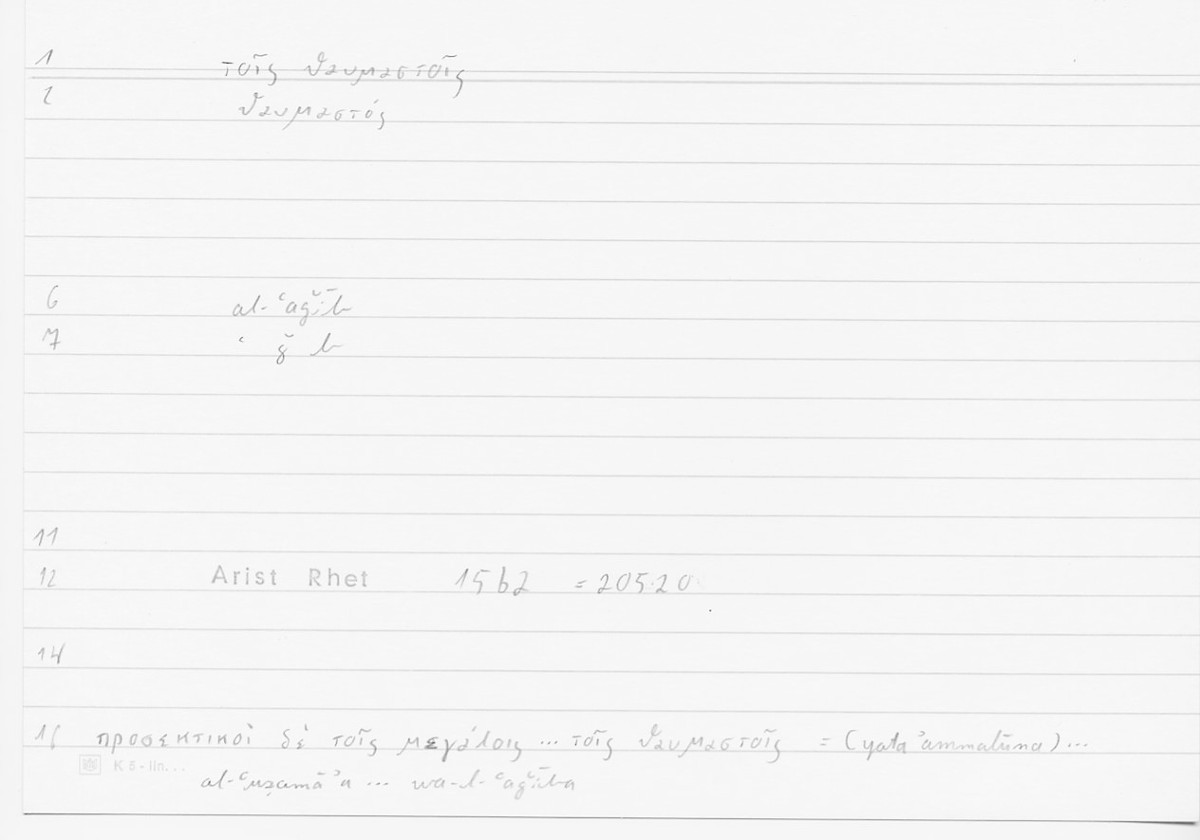 1 τοῖς θαυμαστοῖς
2 θαυμαστός
6 al-ʿaǧīb
7 ʿ ǧ b
11
12 Arist Rhet 15b2 =205.20
14
15 προσεκτικοὶ δὲ τοῖς μεγάλοις ... τοῖς θαυμαστοῖς = (yataʾammalūna) ...
al-ʿuẓamāʾa ... wa-l-ʿaǧība